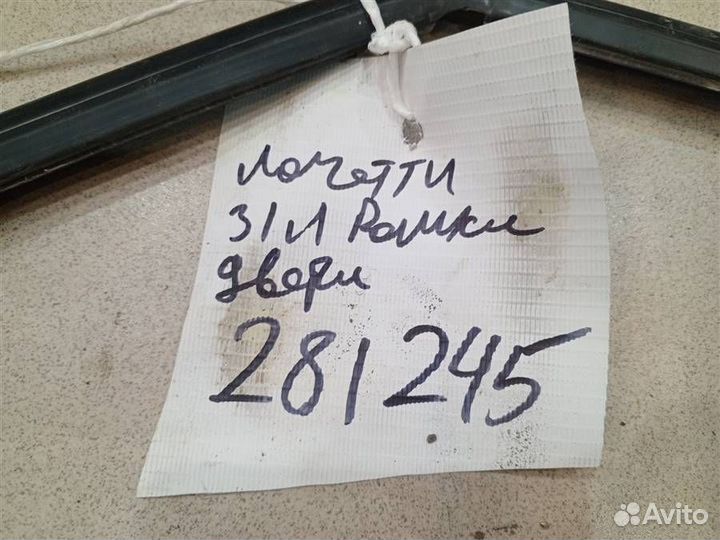 Лачетти
З/Л Рамки
двери
281245
Avito